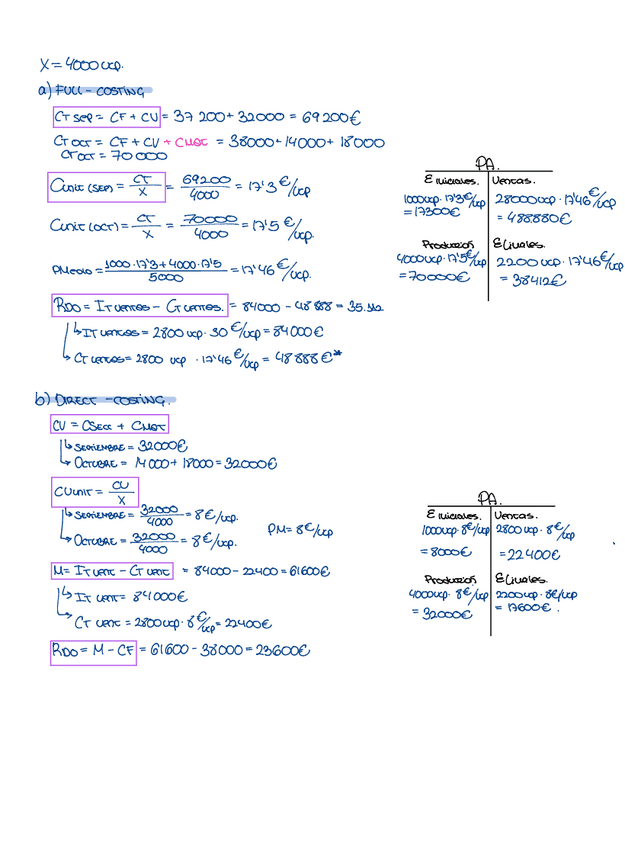 X = 4000 ucp.
a) FULL - COSTING
CT SEP = CF + CU = 37 200 + 32000 = 69 200€
CT OCT = CF + CV + CMOT = 38000 + 14000 + 18000
CT OCT = 70 000
Cunit (SEP) = CT/X = 69200/4000 = 17'3 €/ucp
Cunit (OCT) = CT/X = 70000/4000 = 17'5 €/ucp.
= 1000·17'3 + 4000·17'5/5000 = 17'46 €/ucp.
RDO = IT VENTAS - CT VENTAS. = 84000 - 48 888 = 35.112
↳ IT VENTAS = 2800 ucp · 30 €/ucp = 84000€
↳ CT VENTAS = 2800 ucp · 17'46 €/ucp = 48 888€*
PA.
E iniciales. Ventas.
1000ucp · 17'3€/ucp = 17300€
28000ucp · 17'46€/ucp = 488880€
Producción E finales.
4000ucp · 17'5€/ucp = 70000€
2200ucp · 17'46€/ucp = 38412€
b) DIRECT - COSTING.
CV = CSECC + CMOT
↳ SEPTIEMBRE = 32000€
↳ OCTUBRE = 14000 + 18000 = 32000€
CUunit = CU/X
↳ SEPTIEMBRE = 32000/4000 = 8€/ucp.
↳ OCTUBRE = 32000/4000 = 8€/ucp.
PM = 8€/ucp
M = IT VENT - CT VENT = 84000 - 22400 = 61600€
↳ IT VENT = 84000€
↳ CT VENT = 2800ucp · 8€/ucp = 22400€
RDO = M - CF = 61600 - 38000 = 23600€
PA.
E iniciales. Ventas.
1000ucp · 8€/ucp = 8000€
2800ucp · 8€/ucp = 22400€
Producción E finales.
4000ucp · 8€/ucp = 32000€
2200ucp · 8€/ucp = 17600€.